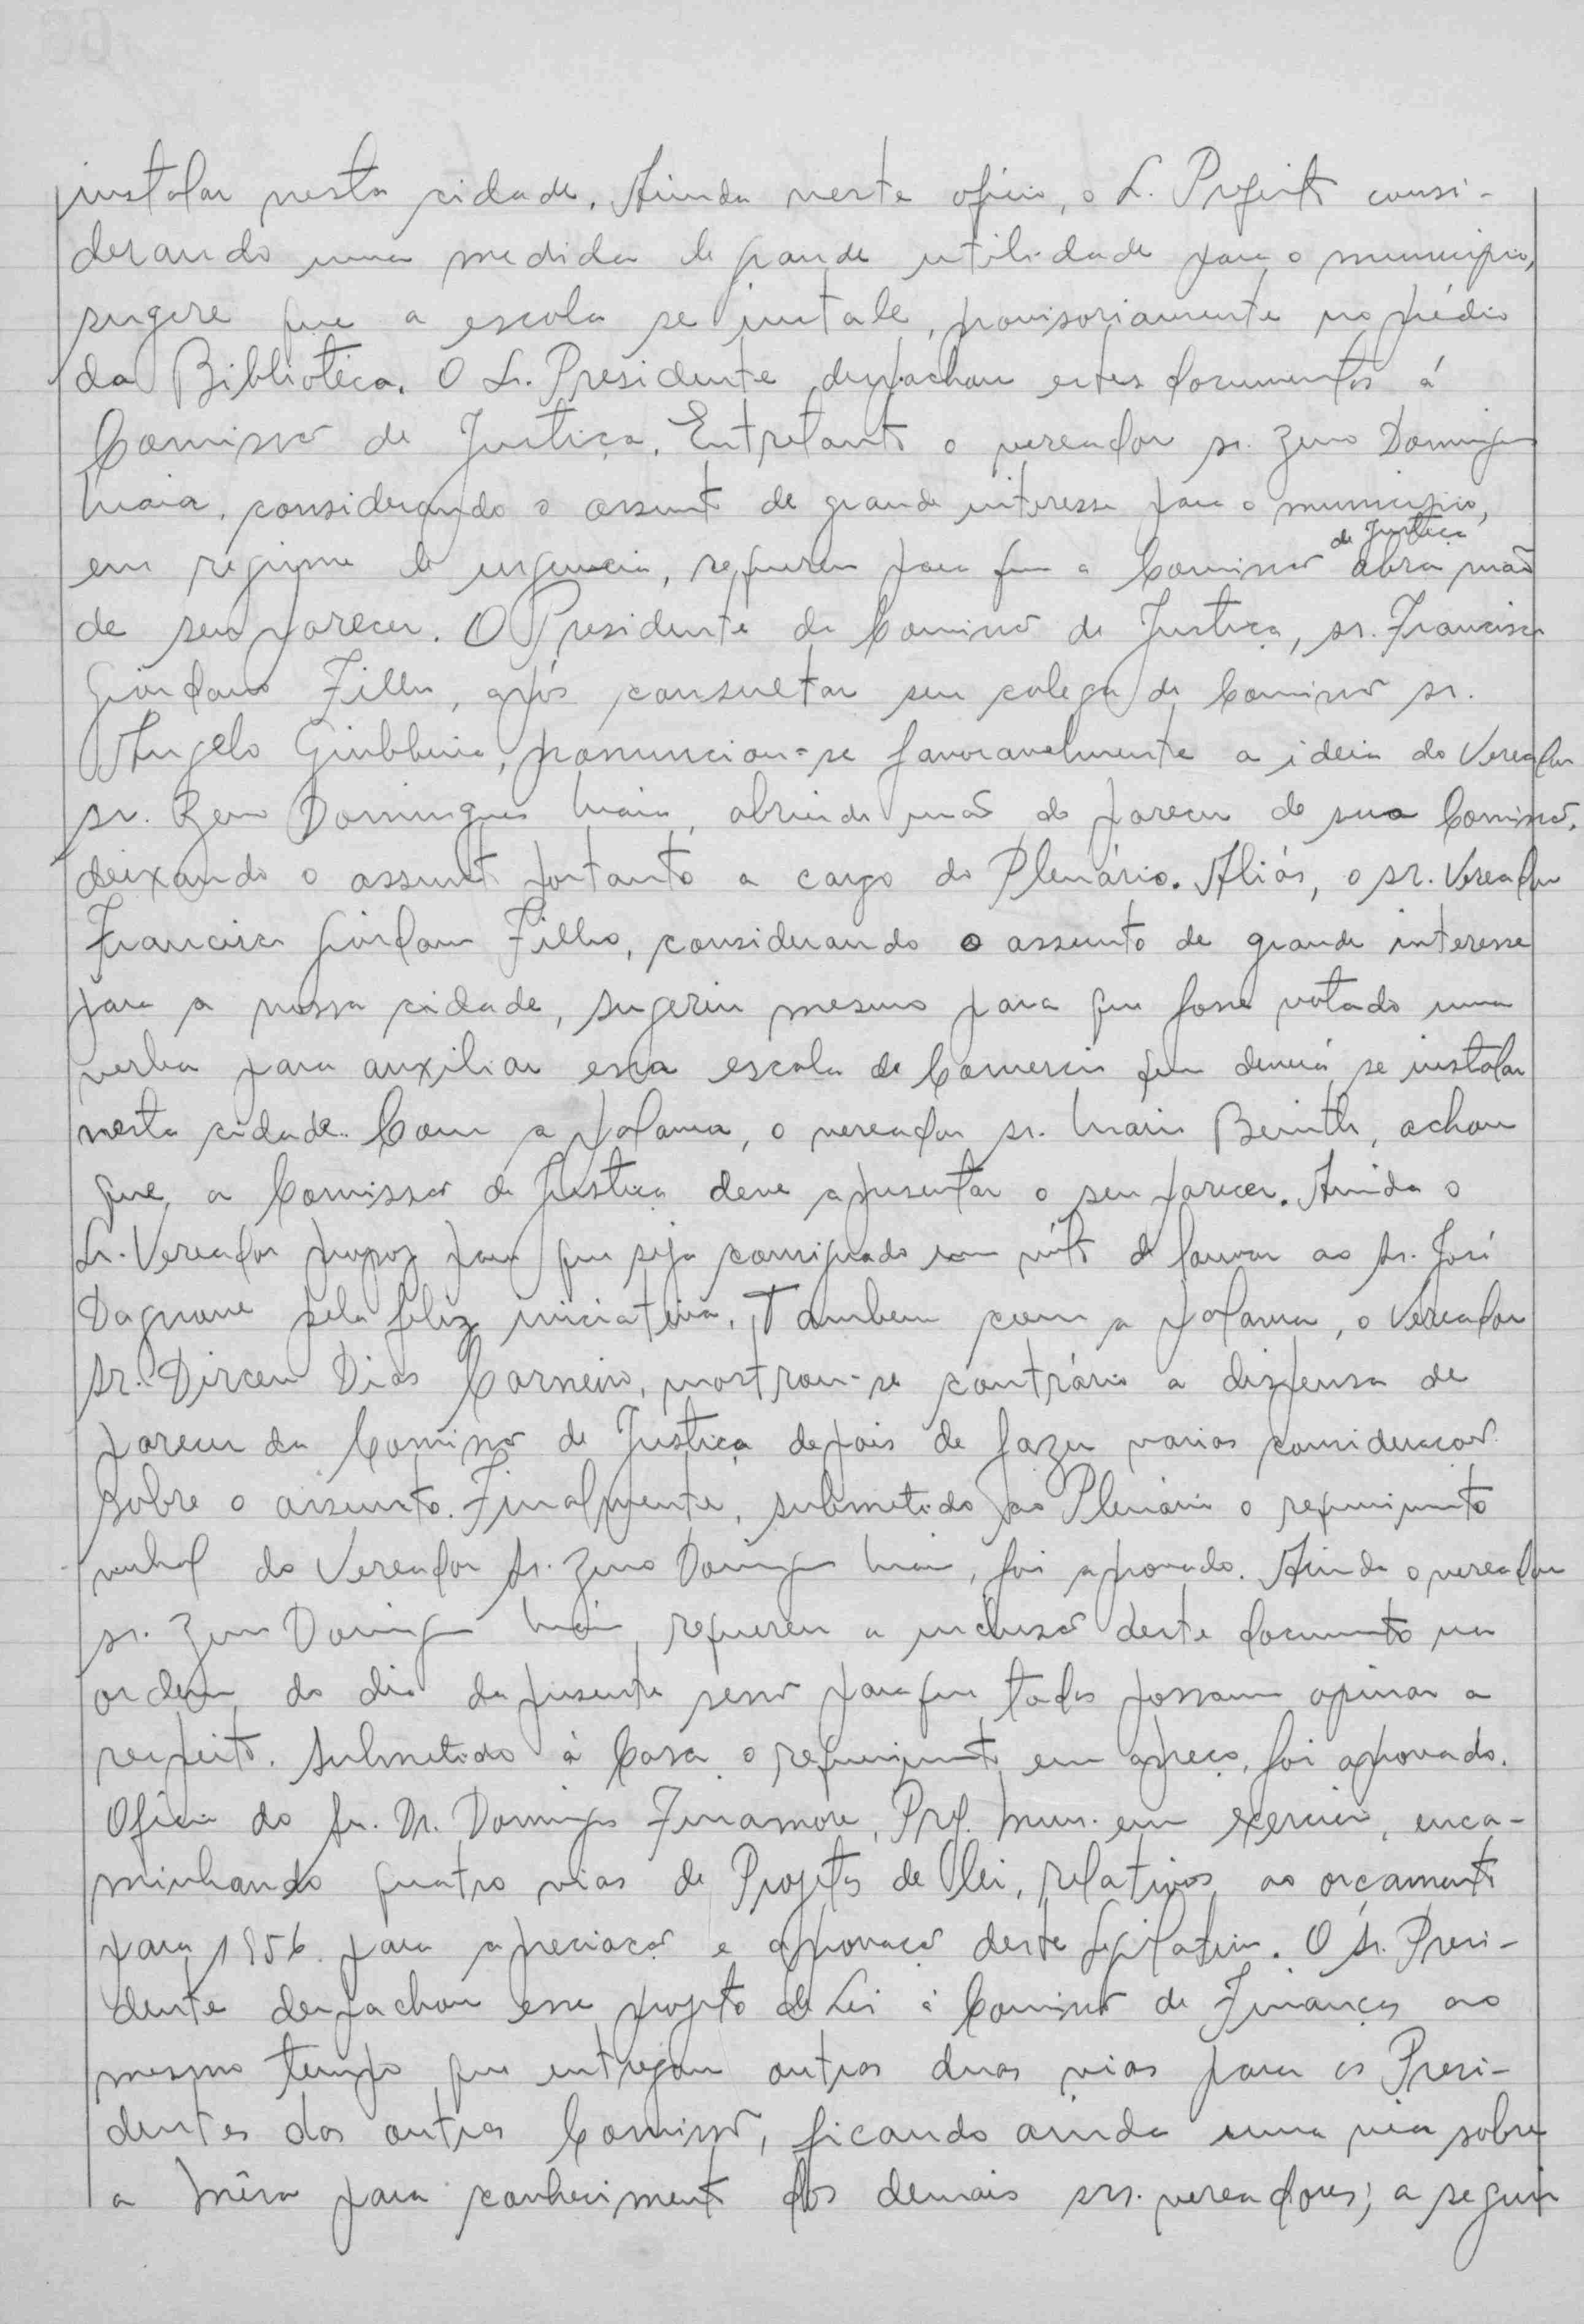 instalar nesta cidade. Ainda neste ofício, o Sr. Prefeito consi-
derando uma medida de grande utilidade para o município,
sugere que a escola se instale, provisoriamente no prédio
da Biblioteca. O Sr. Presidente despachou estes documentos á
Comissão de Justiça. Entretanto o vereador sr. Zeno Domingues
Maia, considerando o assunto de grande interesse para o município,
em regime de urgencia, requereu para que a Comissão de Justiça abra mão
de seu parecer. O Presidente da Comissão de Justiça, sr. Francisco
Giordano Filho, após consultar seu colega de Comissão sr.
Angelo, pronunciou-se favoravelmente a ideia do Vereador
sr. Zeno Domingues Maia, abrindo mão do parecer de sua Comissão,
deixando o assunto portanto a cargo do Plenário. Aliás, o sr. Vereador
Francisco Giordano Filho, considerando o assunto de grande interesse
para a nossa cidade, sugeriu mesmo para que fosse votado uma
verba para auxiliar essa escola de Comercio que deverá se instalar
nesta cidade. Com a palavra, o vereador sr. Mario, achou
que, a Comissão de Justiça deve apresentar o seu parecer. Ainda o
Sr. Vereador propoz para que seja consignado um vóto de louvor ao Sr. José
Dagnone pela feliz iniciativa. Tambem com a palavra, o Vereador
Sr. Dirceu Dias Carneiro, mostrou-se contrário a dispensa de
parecer da Comissão de Justiça depois de fazer varias considerações
sobre o assunto. Finalmente, submetido ao Plenário o requerimento
verbal do Vereador Sr. Zeno Domingues Maia, foi aprovado. Ainda o vereador
sr. Zeno Domingues Maia, requereu a inclusão deste documento na
ordem do dia da presente sessão para que todos possam opinar a
respeito. Submetido á Casa o requerimento em apreço, foi aprovado.
Ofício do Sr. Dr. Domingos Finamore, Pref. Mun. em exercício, enca-
minhando quatro vias de Projetos de lei, relativos ao orçamento
para 1956 para apreciação e aprovação deste Legislativo. O Sr. Presi-
dente despachou esse projeto de Lei á Comissão de Finanças ao
mesmo tempo que entregou outras duas vias para os Presi-
dentes das outras Comissões, ficando ainda uma via sobre
a Mêsa para conhecimento dos demais srs. vereadores; a seguir